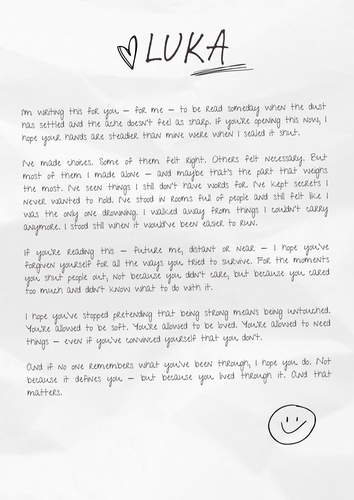 LUKA
I'm writing this for you — for me — to be read someday when the dust
has settled and the ache doesn't feel as sharp. If you're opening this now, I
hope your hands are steadier than mine were when I sealed it shut.
I've made choices. Some of them felt right. Others felt necessary. But
most of them I made alone — and maybe that's the part that weighs
the most. I've seen things I still don't have words for. I've kept secrets I
never wanted to hold. I've stood in rooms full of people and still felt like I
was the only one drowning. I walked away from things I couldn't carry
anymore. I stood still when it would've been easier to run.
If you're reading this — future me, distant or near — I hope you've
forgiven yourself for all the ways you tried to survive. For the moments
you shut people out, not because you didn't care, but because you cared
too much and didn't know what to do with it.
I hope you've stopped pretending that being strong means being untouched.
You're allowed to be soft. You're allowed to be loved. You're allowed to need
things — even if you've convinced yourself that you don't.
And if no one remembers what you've been through, I hope you do. Not
because it defines you — but because you lived through it. And that
matters.